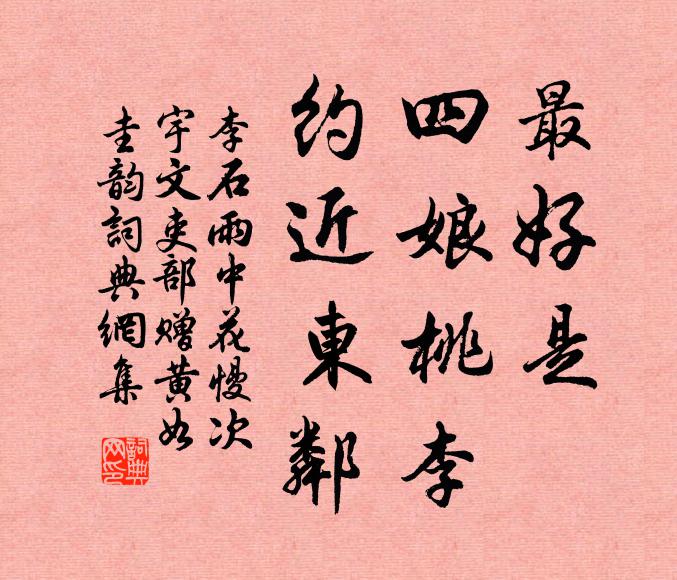 最好是
四娘桃李
約近東鄰
李石雨中花慢次
宇文吏部赠黄如
圭韵詞典網集
詞典
网印